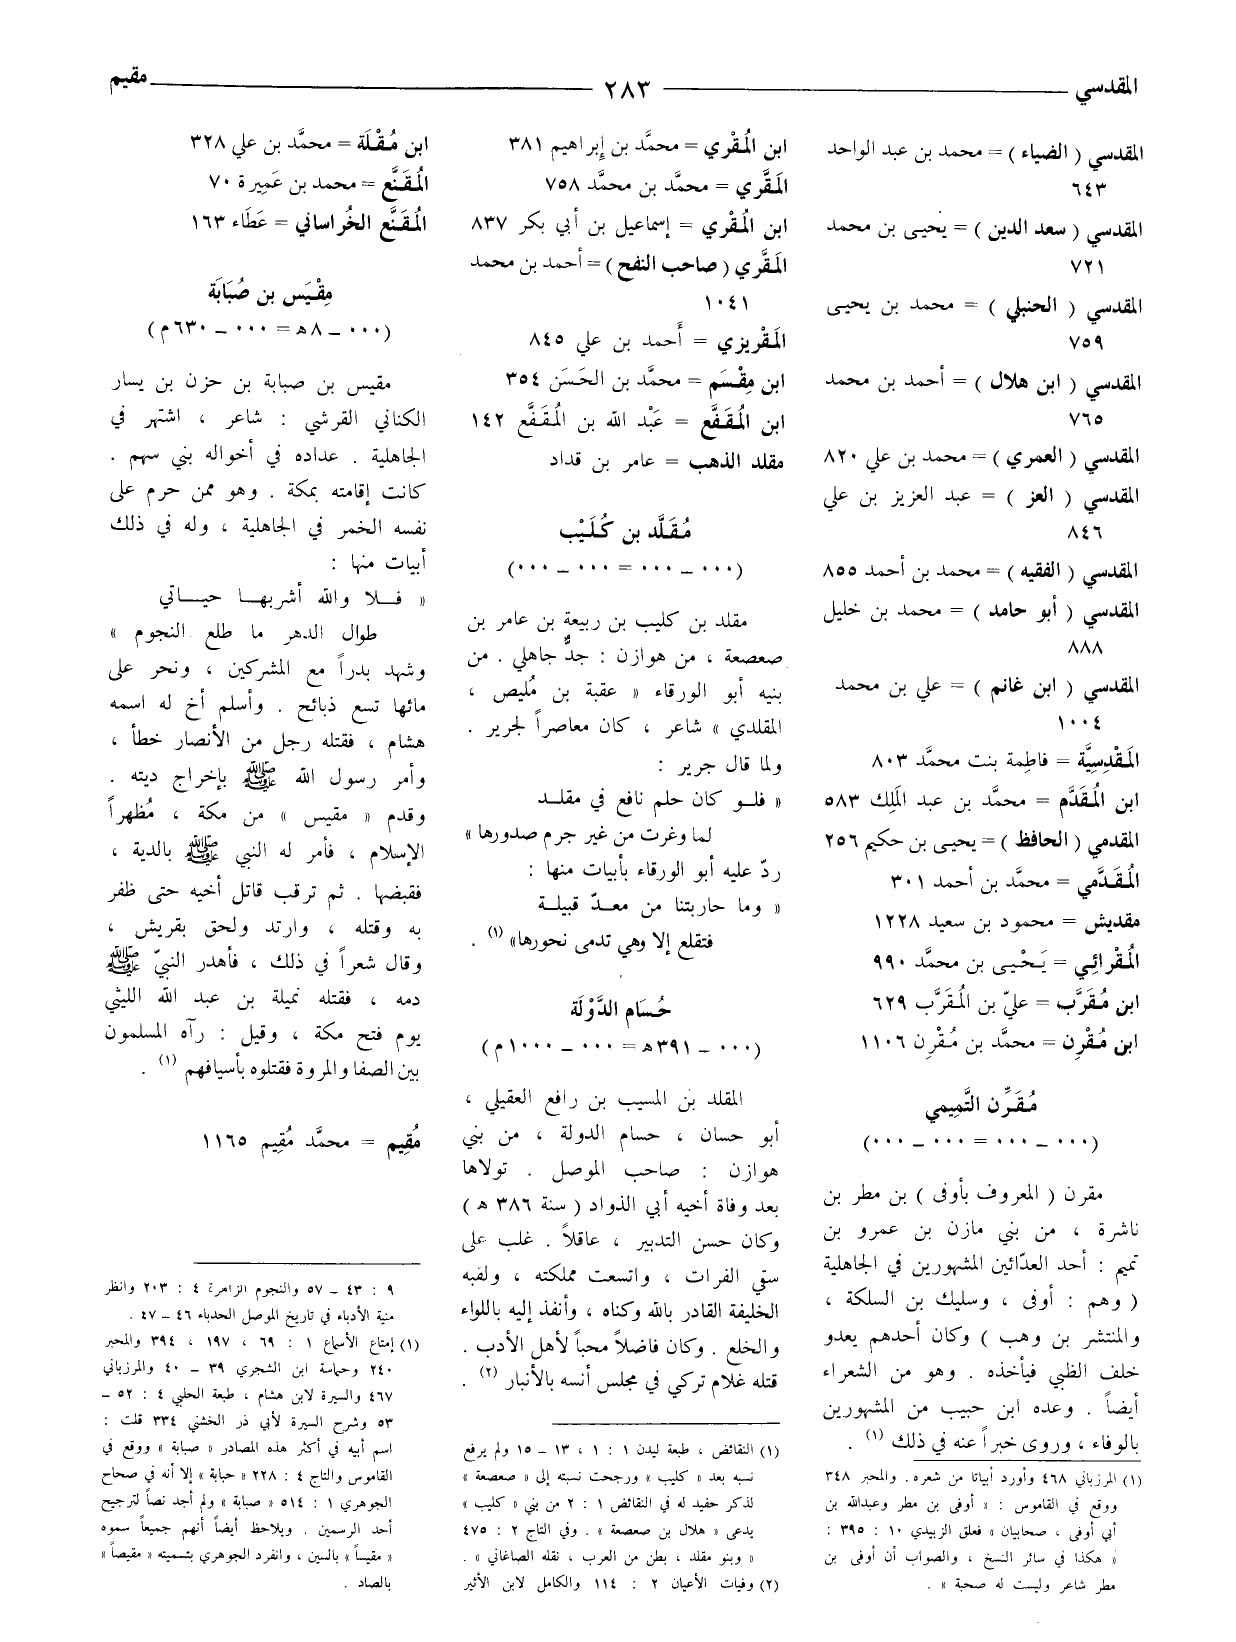 المقدسي
٢٨٣
مقيم
المقدسي ( الضياء ) = محمد بن عبد الواحد
٦٤٣
المقدسي ( سعد الدين ) = يحيى بن محمد
٧٢١
المقدسي ( الحنبلي ) = محمد بن يحيى
٧٥٩
المقدسي ( ابن هلال ) = أحمد بن محمد
٧٦٥
المقدسي ( العمري ) = محمد بن علي ٨٢٠
المقدسي ( العز ) = عبد العزيز بن علي
٨٤٦
المقدسي ( الفقيه ) = محمد بن أحمد ٨٥٥
المقدسي ( أبو حامد ) = محمد بن خليل
٨٨٨
المقدسي ( ابن غانم ) = علي بن محمد
١٠٠٤
المَقْدِسِيَّة = فاطِمة بنت محمَّد ٨٠٣
ابن المُقَدَّم = محمَّد بن عبد المَلِك ٥٨٣
المقدمي ( الحافظ ) = يحيى بن حكيم ٢٥٦
المُقَدَّمي = محمَّد بن أحمد ٣٠١
مقديش = محمود بن سعيد ١٢٢٨
المُقْرائِي = يَحْيى بن محمَّد ٩٩٠
ابن مُقَرَّب = عليّ بن المُقَرَّب ٦٢٩
ابن مُقْرِن = محمَّد بن مُقْرِن ١١٠٦
مُقَرِّن التَّمِيمي
(٠٠٠ ــ ٠٠٠ = ٠٠٠ ــ ٠٠٠)
مقرن ( المعروف بأوفى ) بن مطر بن
ناشرة ، من بني مازن بن عمرو بن
تميم : أحد العدّائين المشهورين في الجاهلية
( وهم : أوفى ، وسليك بن السلكة ،
والمنتشر بن وهب ) وكان أحدهم يعدو
خلف الظبي فيأخذه . وهو من الشعراء
أيضاً . وعده ابن حبيب من المشهورين
بالوفاء ، وروى خبراً عنه في ذلك (١) .
(١) المرزباني ٤٦٨ وأورد أبياتا من شعره . والمحبر ٣٤٨
ووقع في القاموس : « أوفى بن مطر وعبدالله بن
أبي أوفى ، صحابيان » فعلق الزبيدي ١٠ : ٣٩٥ :
« هكذا في سائر النسخ ، والصواب أن أوفى بن
مطر شاعر وليست له صحبة » .
ابن المُقْري = محمَّد بن إبراهيم ٣٨١
المَقَّري = محمَّد بن محمَّد ٧٥٨
ابن المُقْري = إسماعيل بن أبي بكر ٨٣٧
المَقَّري ( صاحب النفح ) = أحمد بن محمد
١٠٤١
المَقْريزي = أحمد بن علي ٨٤٥
ابن مِقْسَم = محمَّد بن الحَسَن ٣٥٤
ابن المُقَفَّع = عَبْد الله بن المُقَفَّع ١٤٢
مقلد الذهب = عامر بن قداد
مُقَلَّد بن كُلَيْب
(٠٠٠ ــ ٠٠٠ = ٠٠٠ ــ ٠٠٠)
مقلد بن كليب بن ربيعة بن عامر بن
صعصعة ، من هوازن : جدٌّ جاهلي . من
بنيه أبو الورقاء « عقبة بن مُليص ،
المقلدي » شاعر ، كان معاصراً لجرير .
ولما قال جرير :
« فلو كان حلم نافع في مقلد
لما وغرت من غير جرم صدورها »
ردّ عليه أبو الورقاء بأبيات منها :
« وما حاربتنا من معدّ قبيلة
فتقلع إلا وهي تدمى نحورها» (١) .
حُسَام الدَّوْلَة
(٠٠٠ ــ ٣٩١ه = ٠٠٠ ــ ١٠٠٠م)
المقلد بن المسيب بن رافع العقيلي ،
أبو حسان ، حسام الدولة ، من بني
هوازن : صاحب الموصل . تولاها
بعد وفاة أخيه أبي الذواد ( سنة ٣٨٦ ه )
وكان حسن التدبير ، عاقلاً . غلب على
سقي الفرات ، واتسعت مملكته ، ولقبه
الخليفة القادر بالله وكناه ، وأنفذ إليه باللواء
والخلع . وكان فاضلاً محباً لأهل الأدب .
قتله غلام تركي في مجلس أنسه بالأنبار (٢) .
(١) النقائض ، طبعة ليدن ١ : ١ ، ١٣ ــ ١٥ ولم يرفع
نسبه بعد « كليب » ورجحت نسبته إلى « صعصعة »
لذكر حفيد له في النقائض ١ : ٢ من بني « كليب »
يدعى « هلال بن صعصعة » . وفي التاج ٢ : ٤٧٥
« وبنو مقلد ، بطن من العرب ، نقله الصاغاني » .
(٢) وفيات الأعيان ٢ : ١١٤ والكامل لابن الأثير
ابن مُقْلَة = محمَّد بن علي ٣٢٨
المُقَنَّع = محمد بن عَمِيرة ٧٠
المُقَنَّع الخُراساني = عَطَاء ١٦٣
مِقْيَس بن صُبَابَة
(٠٠٠ ــ ٨ه = ٠٠٠ ــ ٦٣٠م)
مقيس بن صبابة بن حزن بن يسار
الكناني القرشي : شاعر ، اشتهر في
الجاهلية . عداده في أخواله بني سهم .
كانت إقامته بمكة . وهو ممن حرم على
نفسه الخمر في الجاهلية ، وله في ذلك
أبيات منها :
« فلا والله أشربها حياتي
طوال الدهر ما طلع النجوم »
وشهد بدراً مع المشركين ، ونحر على
مائها تسع ذبائح . وأسلم أخ له اسمه
هشام ، فقتله رجل من الأنصار خطأ ،
وأمر رسول الله ﷺ بإخراج ديته .
وقدم « مقيس » من مكة ، مُظهراً
الإسلام ، فأمر له النبي ﷺ بالدية ،
فقبضها . ثم ترقب قاتل أخيه حتى ظفر
به وقتله ، وارتد ولحق بقريش ،
وقال شعراً في ذلك ، فأهدر النبيّ ﷺ
دمه ، فقتله نميلة بن عبد الله الليثي
يوم فتح مكة ، وقيل : رآه المسلمون
بين الصفا والمروة فقتلوه بأسيافهم (١) .
مُقِيم = محمَّد مُقِيم ١١٦٥
٩ : ٤٣ ــ ٥٧ والنجوم الزاهرة ٤ : ٢٠٣ وانظر
منية الأدباء في تاريخ الموصل الحدباء ٤٦ ــ ٤٧ .
(١) إمتاع الأسماع ١ : ٦٩ ، ١٩٧ ، ٣٩٤ والمحبر
٢٤٠ وحماسة ابن الشجري ٣٩ ــ ٤٠ والمرزباني
٤٦٧ والسيرة لابن هشام ، طبعة الحلبي ٤ : ٥٢ ــ
٥٣ وشرح السيرة لأبي ذر الخشني ٣٣٤ قلت :
اسم أبيه في أكثر هذه المصادر « صبابة » ووقع في
القاموس والتاج ٤ : ٢٢٨ « حبابة » إلا أنه في صحاح
الجوهري ١ : ٥١٤ « صبابة » ولم أجد نصاً لترجيح
أحد الرسمين . ويلاحظ أيضاً أنهم جميعاً سموه
« مقيساً » بالسين ، وانفرد الجوهري بتسميته « مقيصاً »
بالصاد .